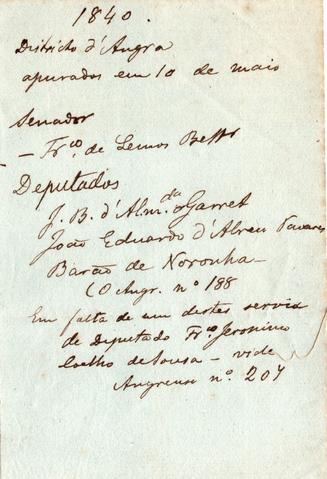 1840.
Districto d'Angra
apurados em 10 de maio
Senador
— Frco. de Lemos Bettr
Deputados
J. B. d'Almda Garret
João Eduardo d'Abreu Tavares
Barão de Noronha —
(O Angr. nº 188
Em falta de um destes servia
de Deputado Frco Jeronimo
Coelho de Sousa — vide
Angrense nº. 207